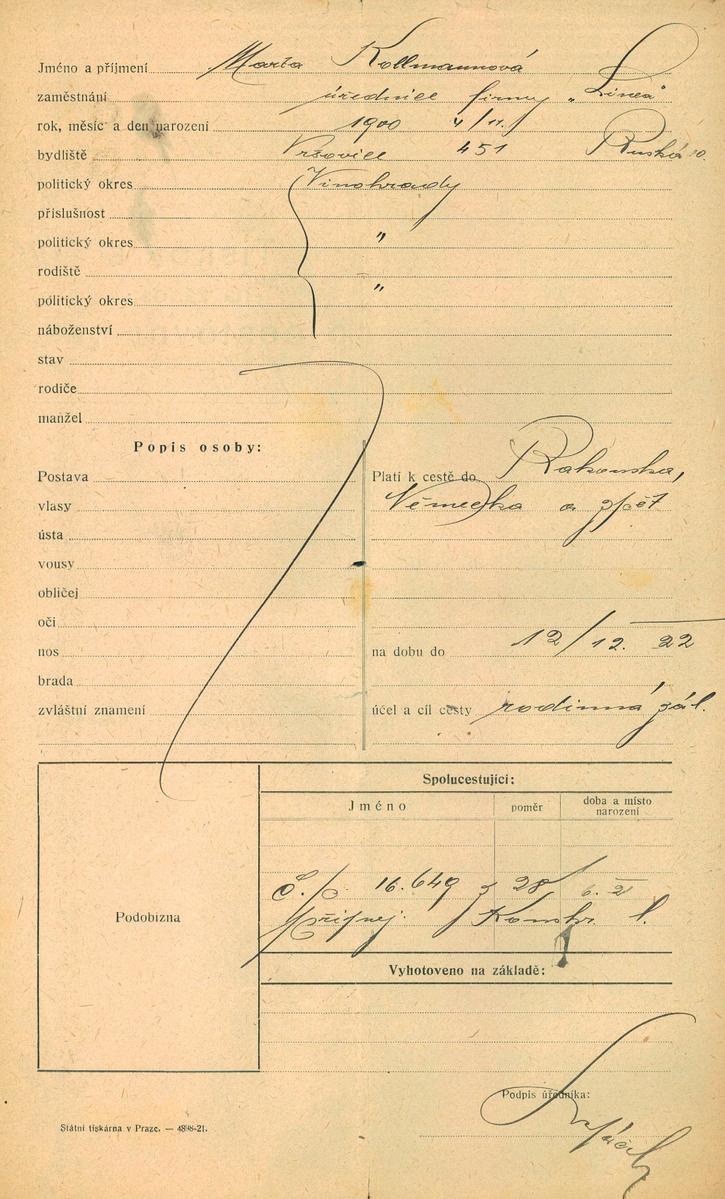 Jméno a příjmení Marta Kollmannová
zaměstnání úřednice firmy „Linea"
rok, měsíc a den narození 1900 4/11.
bydliště Vršovice 451 Ruská 10.
politický okres Vinohrady
příslušnost
politický okres "
rodiště
politický okres "
náboženství
stav
rodiče
manžel
Popis osoby:
Postava
vlasy
ústa
vousy
obličej
oči
nos
brada
zvláštní znamení
Platí k cestě do Rakouska,
Německa a zpět
na dobu do 12/12. 22
účel a cíl cesty rodinná zál.
Podobizna
Spolucestující:
Jméno poměr doba a místo narození
č./p. 16.649 z 28/6. 21
Konskr. l.
Vyhotoveno na základě:
Podpis úředníka:
Státní tiskárna v Praze. — 4898-21.